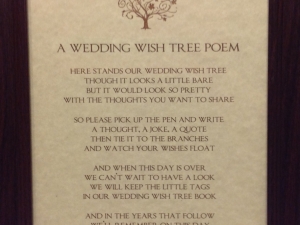 A WEDDING WISH TREE POEM
HERE STANDS OUR WEDDING WISH TREE
THOUGH IT LOOKS A LITTLE BARE
BUT IT WOULD LOOK SO PRETTY
WITH THE THOUGHTS YOU WANT TO SHARE
SO PLEASE PICK UP THE PEN AND WRITE
A THOUGHT, A JOKE, A QUOTE
THEN TIE IT TO THE BRANCHES
AND WATCH YOUR WISHES FLOAT
AND WHEN THIS DAY IS OVER
WE CAN'T WAIT TO HAVE A LOOK
WE WILL KEEP THE LITTLE TAGS
IN OUR WEDDING WISH TREE BOOK
AND IN THE YEARS THAT FOLLOW
WE'LL REMEMBER ON THIS DAY